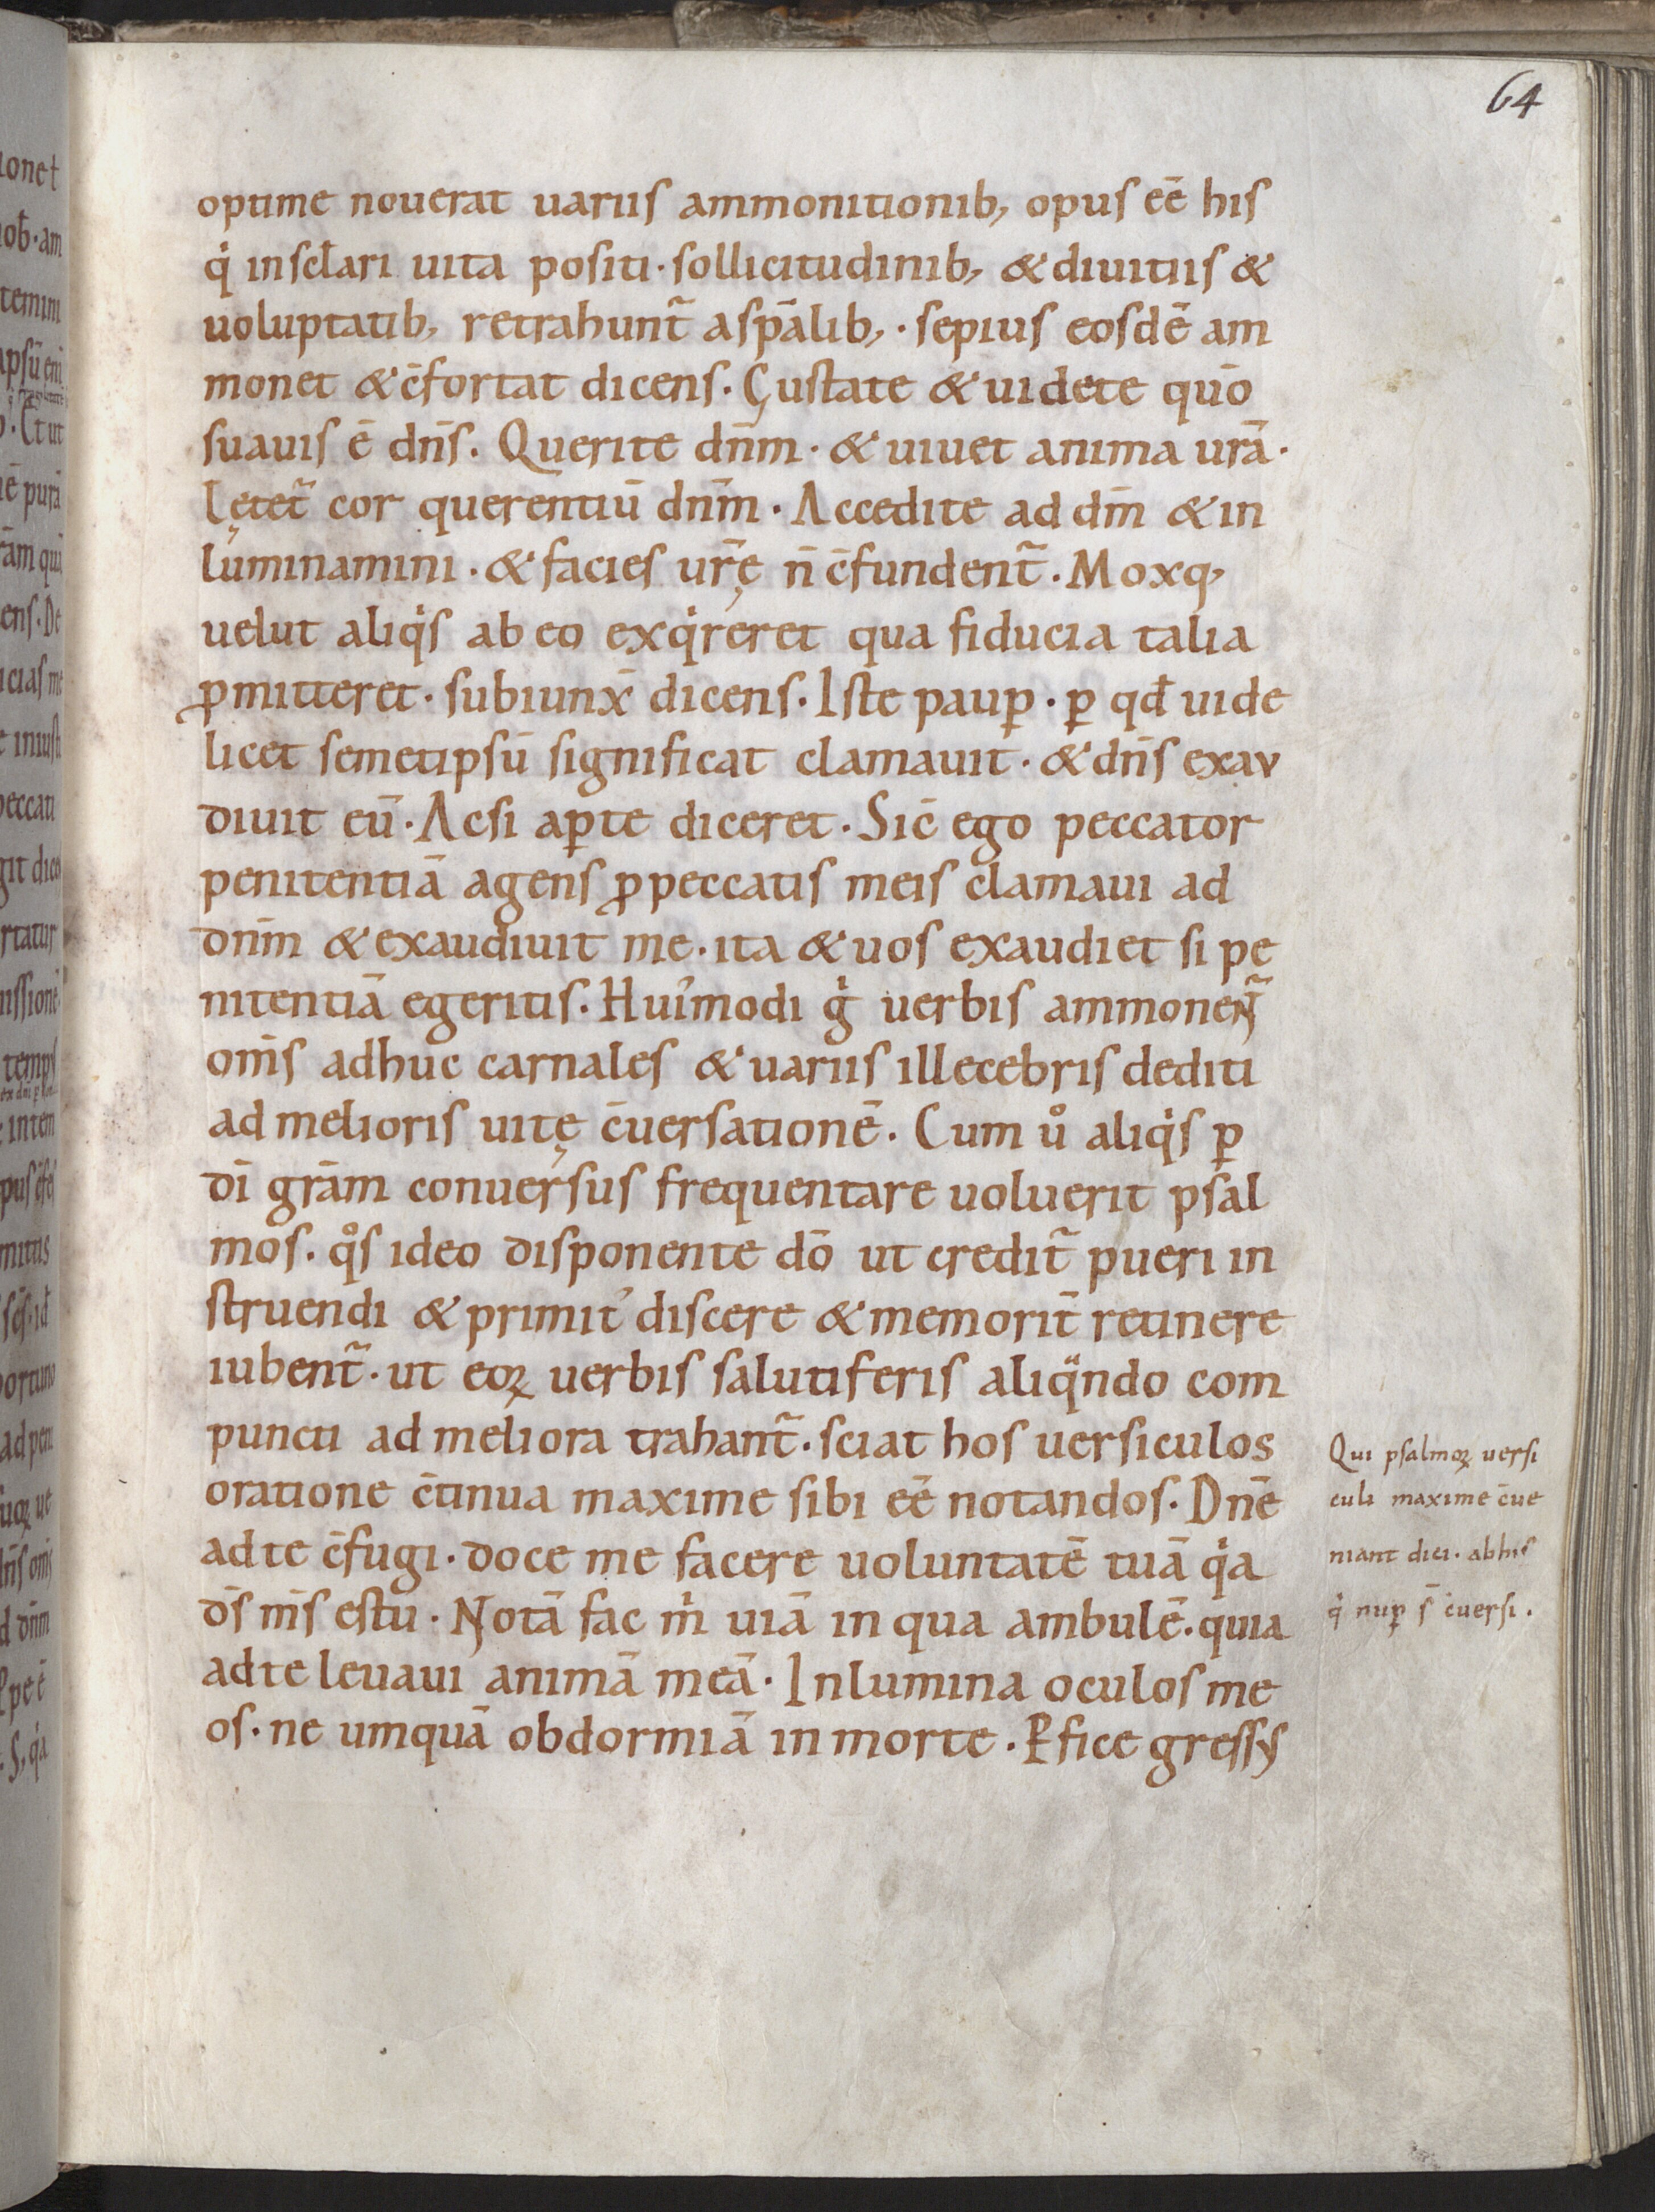 64
optime nouerat uariis ammonitionib, opus eē his
q̇ in sclari uita positi · sollicitudinib, & diuitiis &
uoluptatib, retrahunt̃ a sp̄alib, · sepius eosdē am
monet & c̄fortat dicens. Gustate & uidete quō
suauis ē dn̄s. Querite dn̄m · & uiuet anima urā ·
lętet̃ cor querentiū dn̄m · Accedite ad dm̄ & in
luminamini · & facies ur̄ę n̄ c̄fundent̃ · Moxq,
uelut aliq̇s ab eo exq̇reret qua fiducia talia
ꝓmitteret · subiunx̄ dicens. Iste paup̱ · ꝑ qđ uide
licet semetipsū significat clamauit · & dn̄s exau
diuit eū · Acsi aꝑte diceret. Sic̄ ego peccator
penitentiā agens ꝓ peccatis meis clamaui ad
dn̄m & exaudiuit me · ita & uos exaudiet si pe
nitentiā egeritis. Hui᾽modi g̊ uerbis ammonen̄t̃
om̄s adhuc carnales & uariis illecebris dediti
ad melioris uitę c̄uersationē. Cum ů aliq̇s ꝑ
dī grām conuersus frequentare uoluerit psal
mos. q̊s ideo disponente dō ut credit̃ pueri in
struendi & primit᾽ discere & memorit̄ retinere
iubent̃ · ut eoꝝ uerbis salutiferis aliqͣndo com
puncti ad meliora trahant̃ · sciat hos uersiculos
oratione c̄tinua maxime sibi eē notandos. Dn̄e
ad te c̄fugi · doce me facere uoluntatē tuā q̇a
ds̄ ms̄ es tu · Notā fac ṁ uiā in qua ambulē · quia
ad te leuaui animā meā · Inlumina oculos me
os · ne umquā obdormiā in morte · Ꝑfice gressus
Qui psalmoꝝ uersi
culi maxime c̄ue
niant dici · ab his
q̇ nuꝑ s̄ c̄uersi.